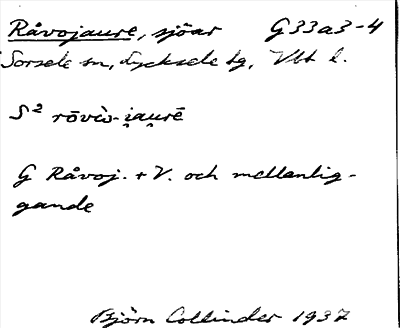 Råvojaure, sjöar G33a3-4
Sorsele sn, Lycksele tg, Vbt l.
S² rōvìo-i̯au̯rē
G Råvoj. + V. och mellanlig-
gande
Björn Collinder 1937